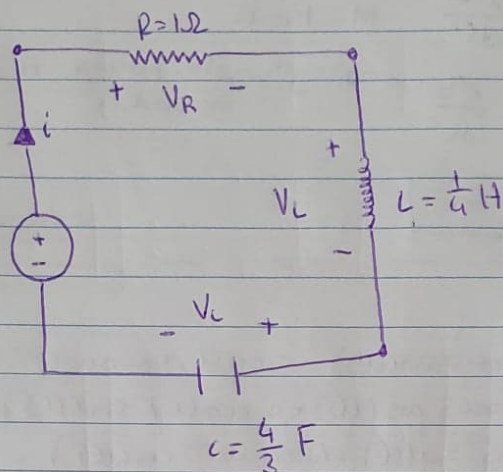 R=1Ω
+ V_R -
i
+
V_L
L = 1/4 H
-
+
--
- V_L +
c = 4/3 F